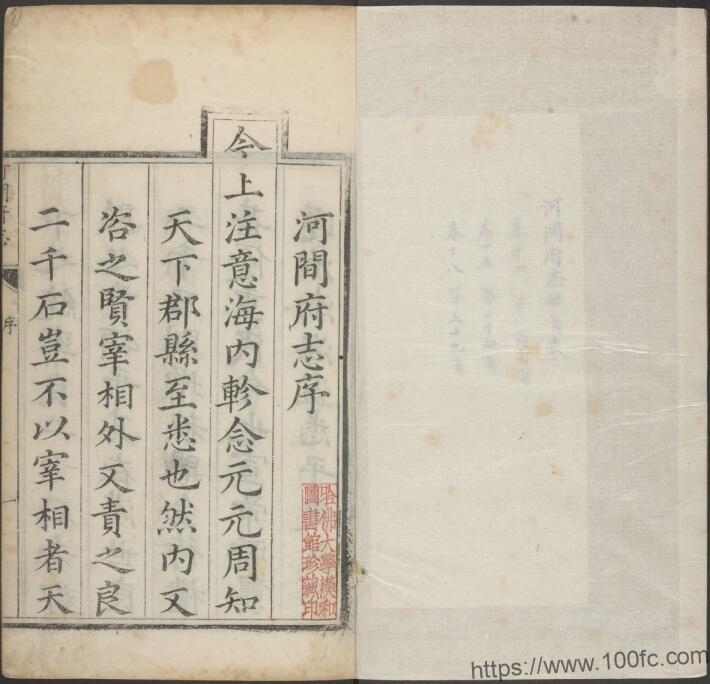 河間府志序
今上注意海內軫念元元周知
天下郡縣至悉也然內又
咨之賢宰相外又責之良
二千石豈不以宰相者天
序
一
哈佛大學漢和
圖書館珍藏印
https://www.100fc.com